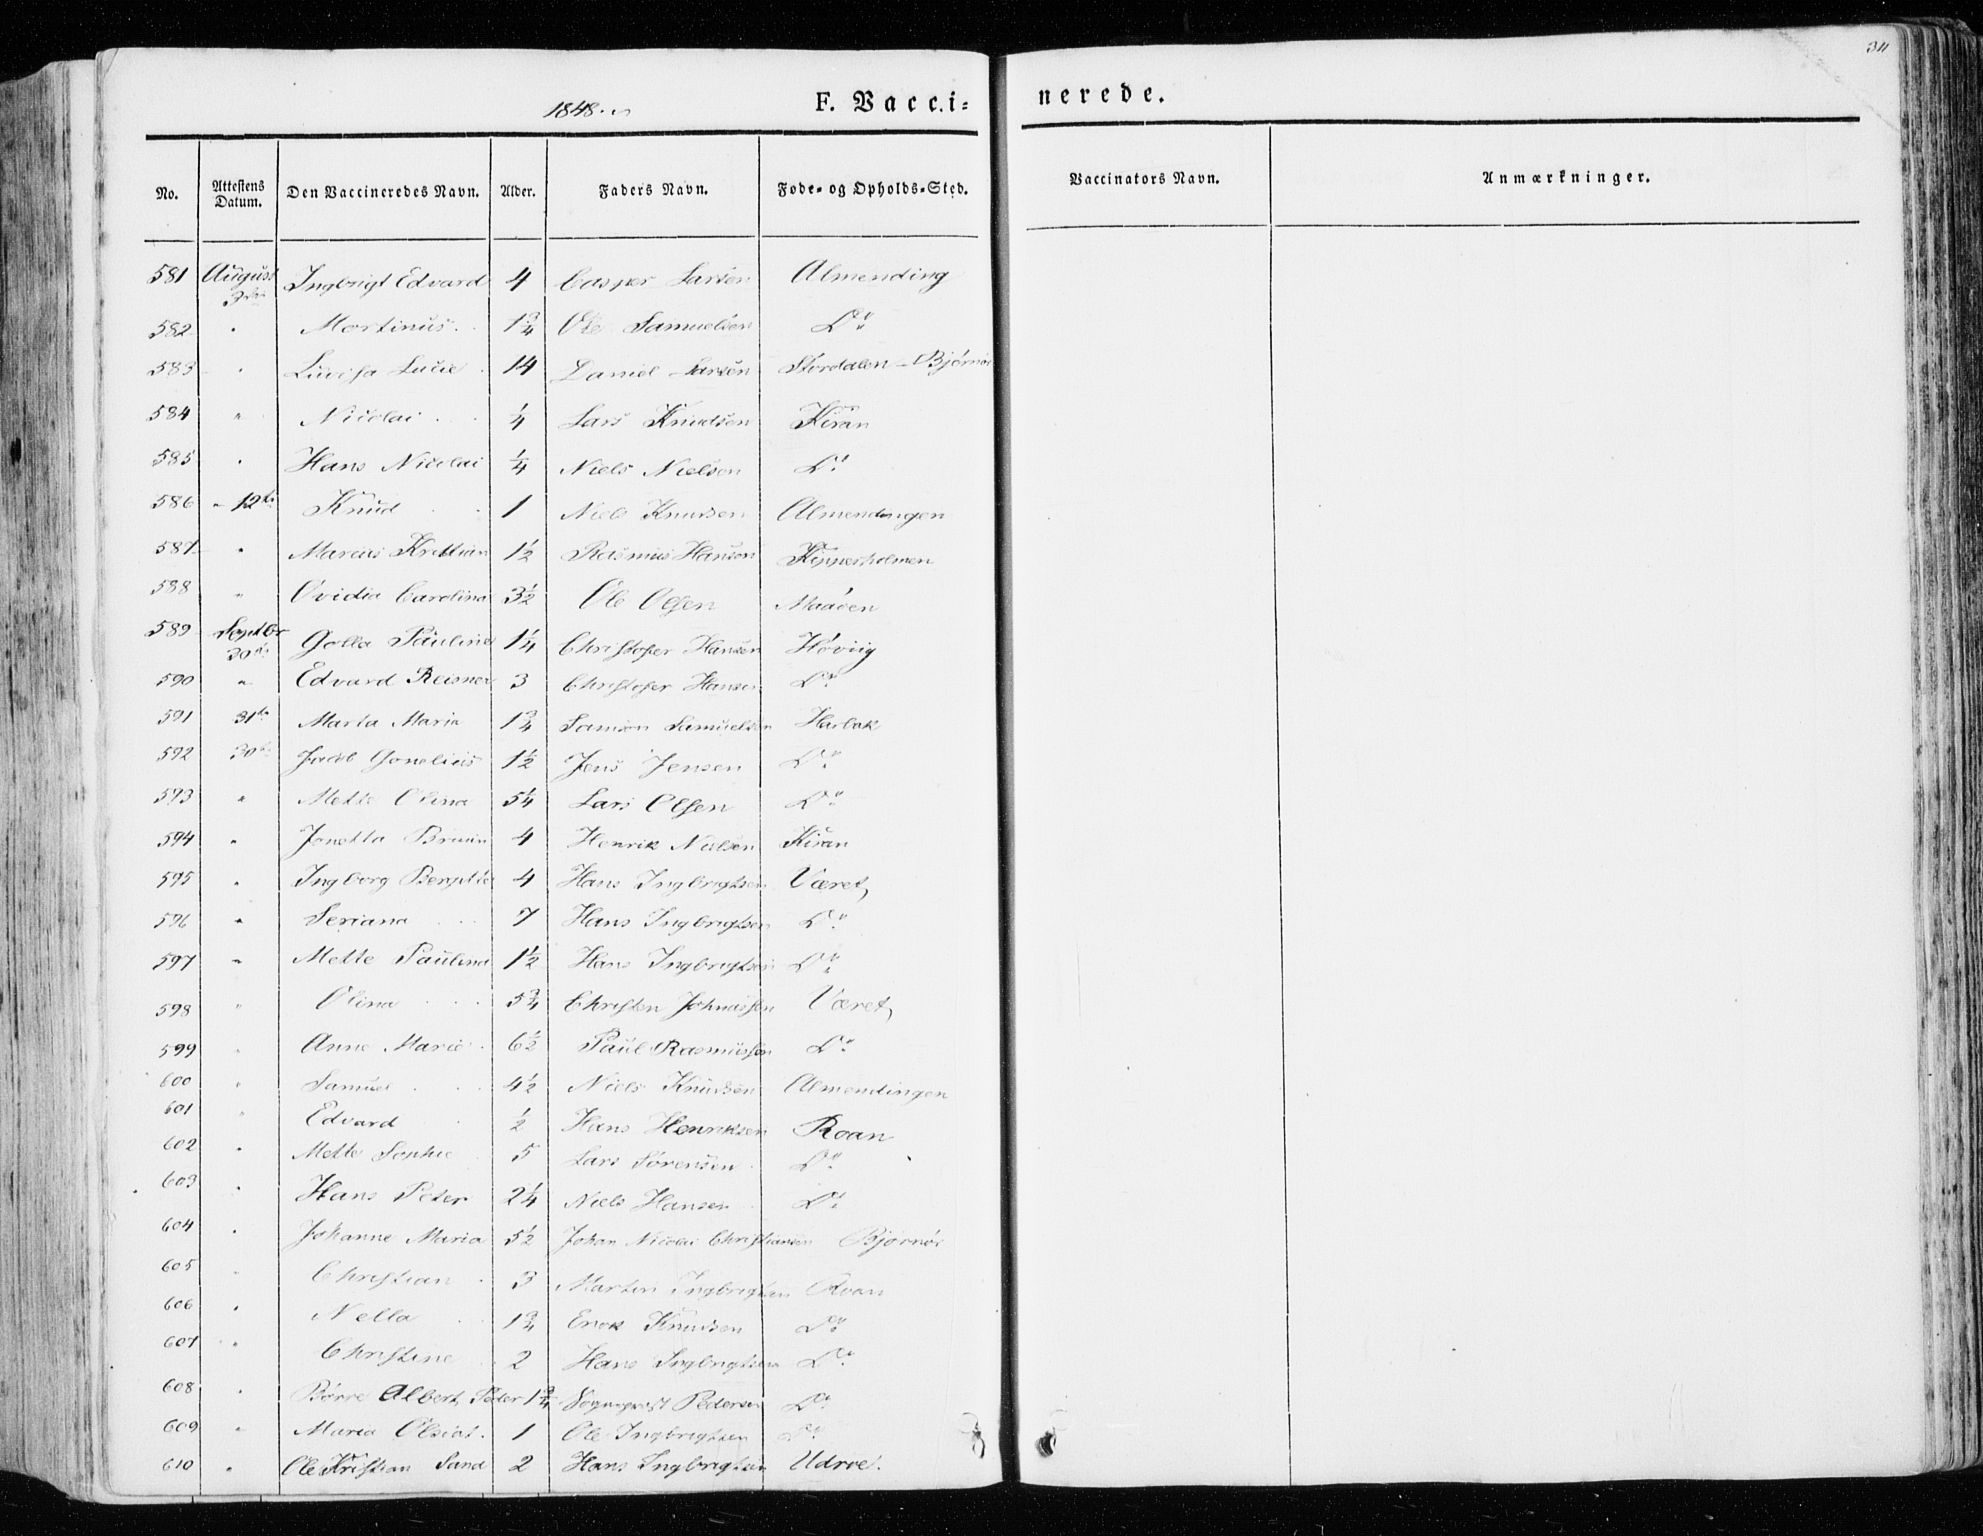 34
1848.
F. Vacci= nerede.
No. Attestens Datum. Den Vaccineredes Navn. Alder. Faders Navn. Føde= og Opholds=Sted. Vaccinators Navn. Anmærkninger.
581 August 3die Ingbrigt Edvard 4 Casper Larsen Almending
582 " Martinus 1 3/4 Ole Samuelsen Do
583 " Lovisa Lucie 14 Daniel Larsen Stordalen - Bjørnør
584 " Nicolai 1/4 Lars Knudsen Kiran
585 " Hans Nicolai 1/4 Niels Nielsen Do
586 " 12te Knud 1 Niels Knudsen Almendingen
587 " Marcus Kristian 1 1/2 Rasmus Hansen Kippersholmen
588 " Ovidia Carolina 3 1/2 Ole Olsen Maaøen
589 Septbr 30te Golla Pauline 1 1/4 Christofer Hansen Høviig
590 " Edvard Reisner 3 Christofer Hansen Do
591 31te Marta Maria 1 3/4 Samson Samuelsen Harbak
592 30te Jacob Gonelius 1 1/2 Jens Jensen Do
593 " Mette Olina 5 1/4 Lars Olsen Do
594 " Jonetta Bruun 4 Henrik Nielsen Kiran
595 " Ingborg 4 Hans Ingbrigtsen Været
596 " Seriana 7 Hans Ingbrigtsen Do
597 " Mette Paulina 1 1/2 Hans Ingbrigtsen Do
598 " Olina 5 3/4 Christen Johnassen Været
599 " Anne Marie 6 1/2 Paul Rasmussen Do
600 " Samuel 4 1/2 Niels Knudsen Almendingen
601 " Edvard 1/2 Hans Henriksen Roan
602 " Mette Sophie 5 Lars Sørensen Do
603 " Hans Peter 2 1/4 Niels Hansen Do
604 " Johanne Maria 5 1/2 Johan Nicolai Christiansen Bjørnør
605 " Christian 3 Martin Ingbrigtsen Roan
606 " Nella 1 3/4 Erik Knudsen Do
607 " Christine 2 Hans Ingbrigtsen Do
608 " Børre Albert Peder 1 3/4 Sogneprest Pedersen Do
609 " Maria 1 Ole Ingbrigtsen Do
610 " Ole Kristian Sand 2 Hans Ingbrigtsen Udroe.